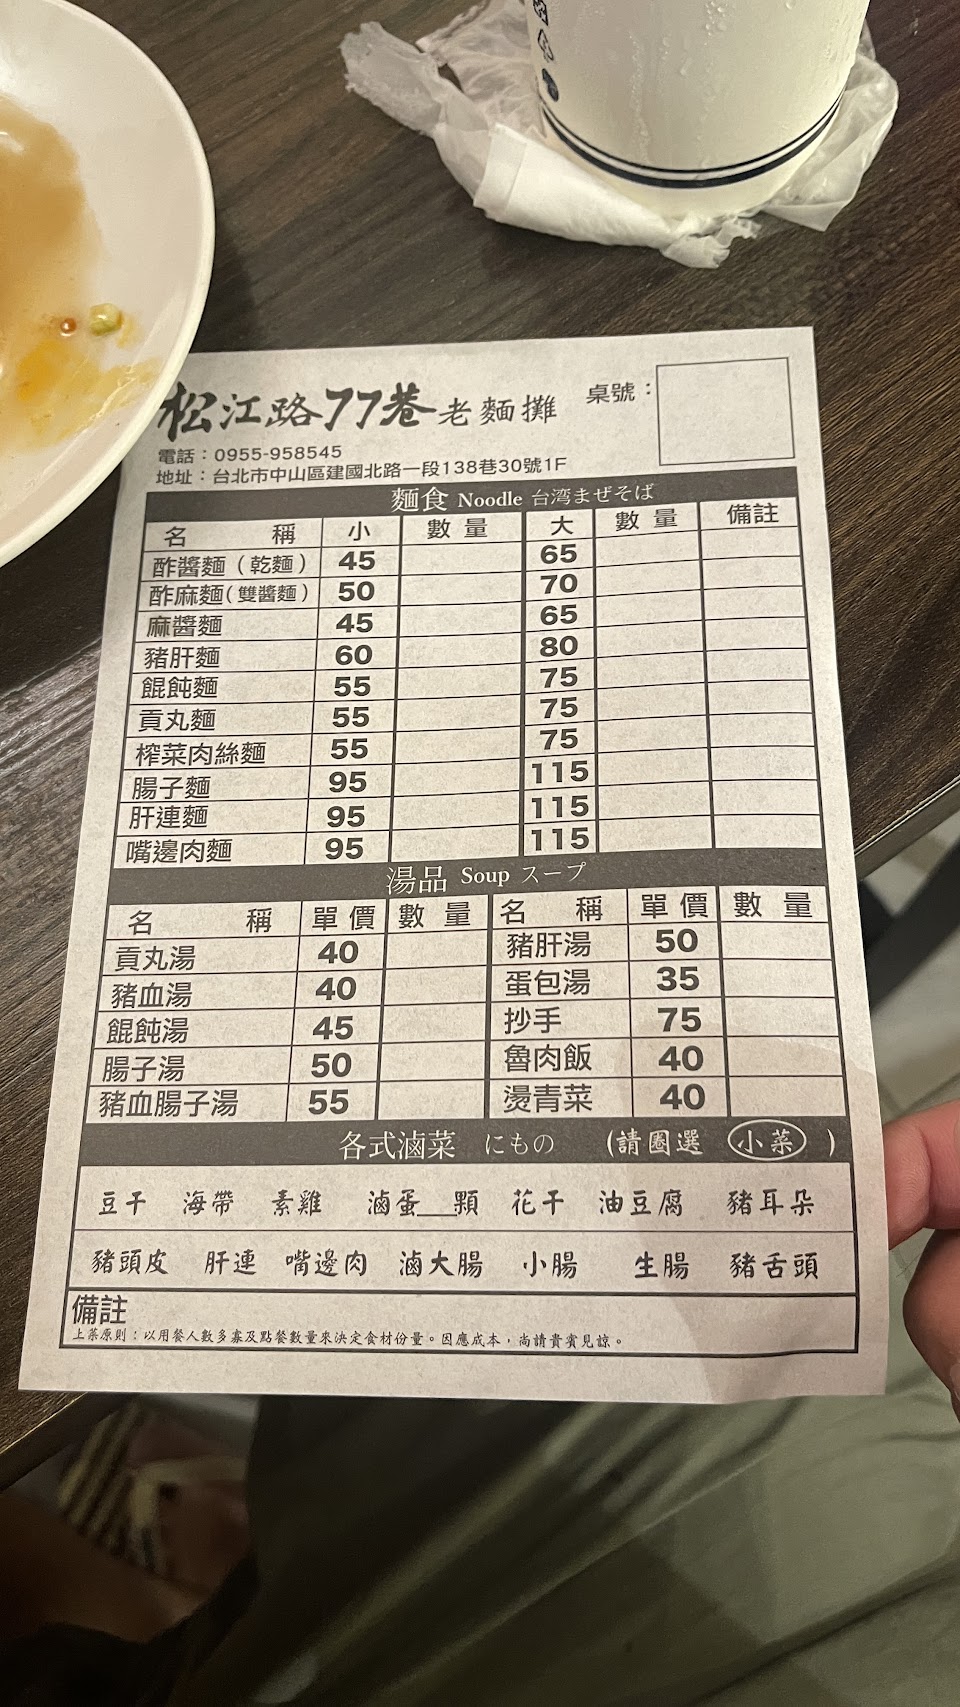 松江路77巷老麵攤 桌號：
電話：0955-958545
地址：台北市中山區建國北路一段138巷30號1F
麵食 Noodle 台湾まぜそば
名 稱 小 數 量 大 數 量 備註
酢醬麵（乾麵） 45 65
酢麻麵（雙醬麵） 50 70
麻醬麵 45 65
豬肝麵 60 80
餛飩麵 55 75
貢丸麵 55 75
榨菜肉絲麵 55 75
腸子麵 95 115
肝連麵 95 115
嘴邊肉麵 95 115
湯品 Soup スープ
名 稱 單 價 數 量 名 稱 單 價 數 量
貢丸湯 40 豬肝湯 50
豬血湯 40 蛋包湯 35
餛飩湯 45 抄手 75
腸子湯 50 魯肉飯 40
豬血腸子湯 55 燙青菜 40
各式滷菜 にもの （請圈選 小菜 ）
豆干 海帶 素雞 滷蛋__顆 花干 油豆腐 豬耳朵
豬頭皮 肝連 嘴邊肉 滷大腸 小腸 生腸 豬舌頭
備註
上菜原則：以用餐人數多寡及點餐數量來決定食材份量。因應成本，尚請貴賓見諒。